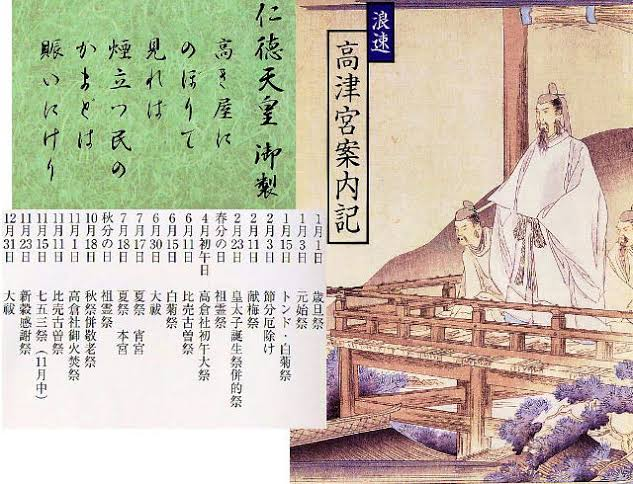 浪速
高津宮案内記
仁徳天皇 御製
高き屋に
のぼりて
見れは
煙立つ民の
かまどは
賑いにけり
1月1日 歳旦祭
1月3日 元始祭
1月15日 トンド・白菊祭
2月3日 節分厄除け
2月11日 献梅祭
2月23日 皇太子誕生祭併的祭
春分の日 祖霊祭
4月初午日 高倉社初午大祭
6月11日 比売古曽祭
6月15日 白菊祭
6月30日 大祓
7月17日 夏祭 宵宮
7月18日 夏祭 本宮
秋分の日 祖霊祭
10月18日 秋祭併敬老祭
11月1日 高倉社御火焚祭
11月11日 比売古曽祭
11月15日 七五三祭（11月中）
11月23日 新穀感謝祭
12月31日 大祓